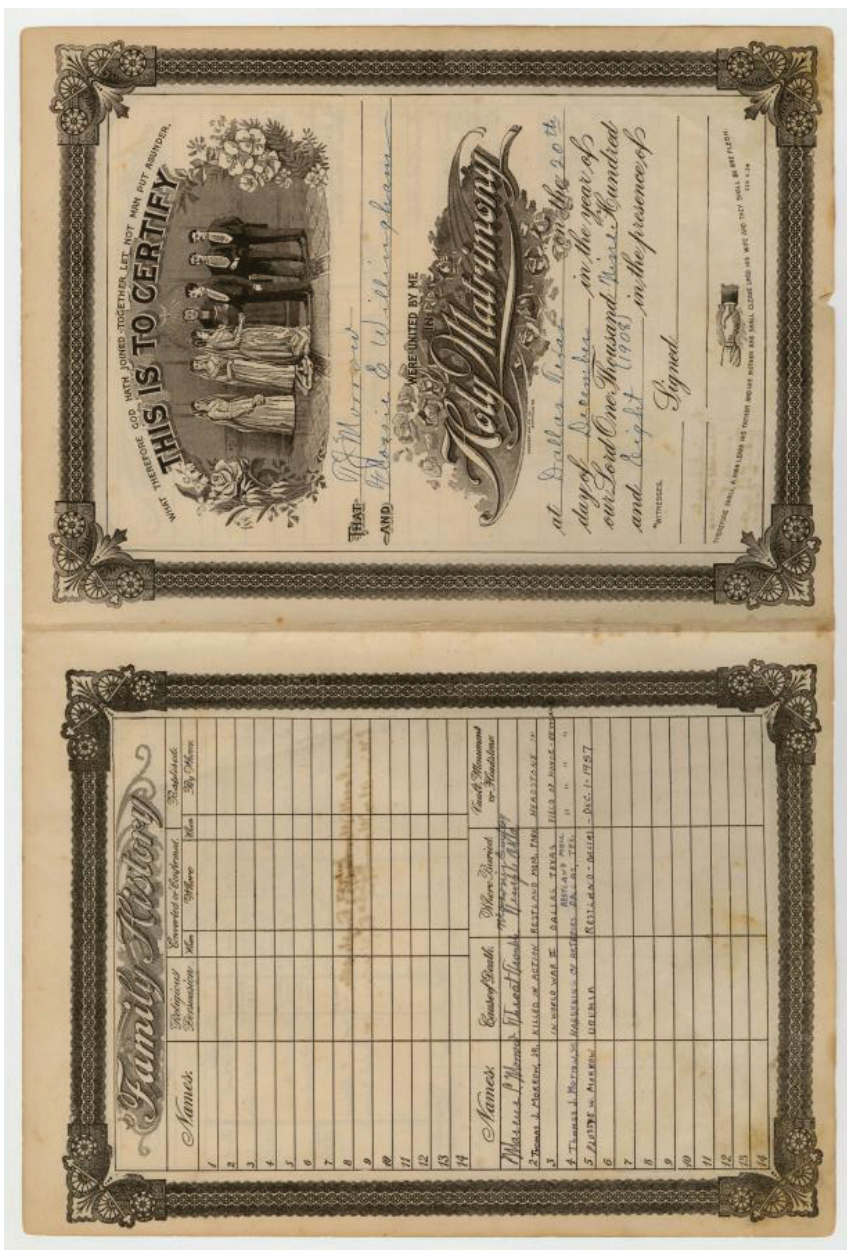 WHAT THEREFORE GOD HATH JOINED TOGETHER LET NOT MAN PUT ASUNDER.
THIS IS TO CERTIFY
THAT T J Morrow
AND Flossie E Willingham
WERE UNITED BY ME
IN
Holy Matrimony
at Dallas Texas on the 20th
day of December in the year of
our Lord One Thousand Nine Hundred
and Eight (1908) in the presence of
WITNESSES. Signed
THEREFORE SHALL A MAN LEAVE HIS FATHER AND HIS MOTHER AND SHALL CLEAVE UNTO HIS WIFE AND THEY SHALL BE ONE FLESH.
Family History
Names. Religious Persuasion. Converted or Confirmed. Baptised.
When Where When By Whom
1
2
3
4
5
6
7
8
9
10
11
12
13
14
Names. Cause of Death. Where Buried. Vault, Monument or Headstone
Throat Trouble
2 THOMAS J. MORROW, JR. KILLED IN ACTION RESTLAND MEM. PARK HEADSTONE IN
3 IN WORLD WAR II DALLAS TEXAS FIELD OF HONOR
4 THOMAS J. MORROW, HARDENING OF ARTERIES RESTLAND MEM. DALLAS, TEX. " " " "
5 FLOSSYE W MORROW UREMIA RESTLAND - DALLAS - DEC. 1 - 1957
6
7
8
9
10
11
12
13
14